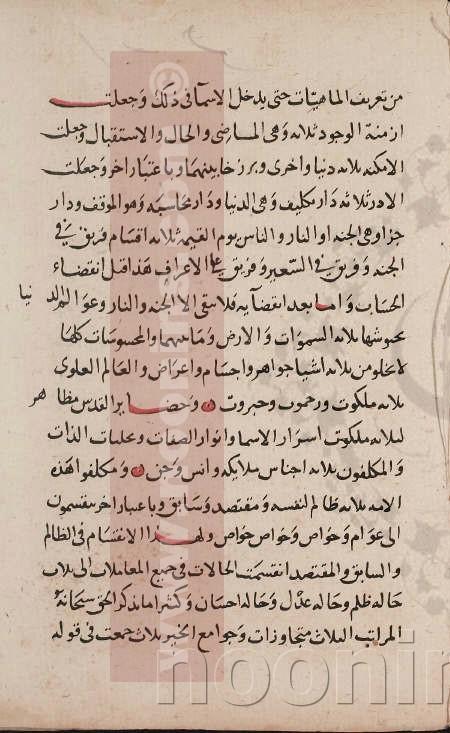 من تعريف الماهيات حتى يدخل الاسما في ذلك وجعلت
ازمنة الوجود ثلاثه وهي الماضي والحال والاستقبال وجعلت
الامكنه ثلاثه دنيا واخرى وبرزخا بينهما وباعتبار اخر وجعلت
الادر ثلاثه دار تكليف وهي الدنيا ودار محاسبه وهو الموقف ودار
جزا وهي الجنه او النار والناس يوم القيمه ثلاثه اقسام فريق في
الجنه وفريق في السعير وفريق على الاعراف هذا قبل انقضاء
الحساب واما بعد انقضايه فلا يبقى الا الجنه والنار وعوالم الدنيا
بحبوشها ثلاثه السموات والارض وما بينهما والمحسوسات كلها
لا تخلو من ثلاثه اشيا جواهر واجسام واعراض والعالم العلوي
ثلاثه ملكوت ورحموت وجبروت وحضاير القدس مظاهر
لثلاثه ملكوت اسرار الاسما وانوار الصفات وتجليات الذات
والمكلفون ثلاثه اجناس ملايكه وانس وجن ومكلفوا هذه
الامه ثلاثه ظالم لنفسه ومقتصد وسابق وباعتبار اخر ينقسمون
الى عوام وخواص وخواص خواص ولهذا الانقسام في الظالم
والسابق والمقتصد انقسمت الحالات في جميع المعاملات الى ثلاث
حالة ظلم وحالة عدل وحالة احسان وكثيرا ما يذكر الحق سبحانه
المراتب الثلاث متجاوزات وجوامع الخير ثلاث جمعت في قوله
noonin